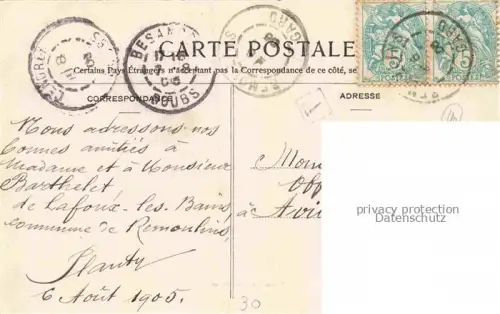 CARTE POSTALE
Certains Pays Étrangers n'acceptent pas la Correspondance de ce côté, se
CORRESPONDANCE
ADRESSE
BESAN
DOUBS
GARD
GARD
5c
POSTES
T
Nous adressons nos
bonnes amitiés à
Madame et à Monsieur
Barthelet
de Lafoux-les-Bains,
commune de Remoulins,
6 Août 1905.
Mon
à Avi
privacy protection
Datenschutz
30